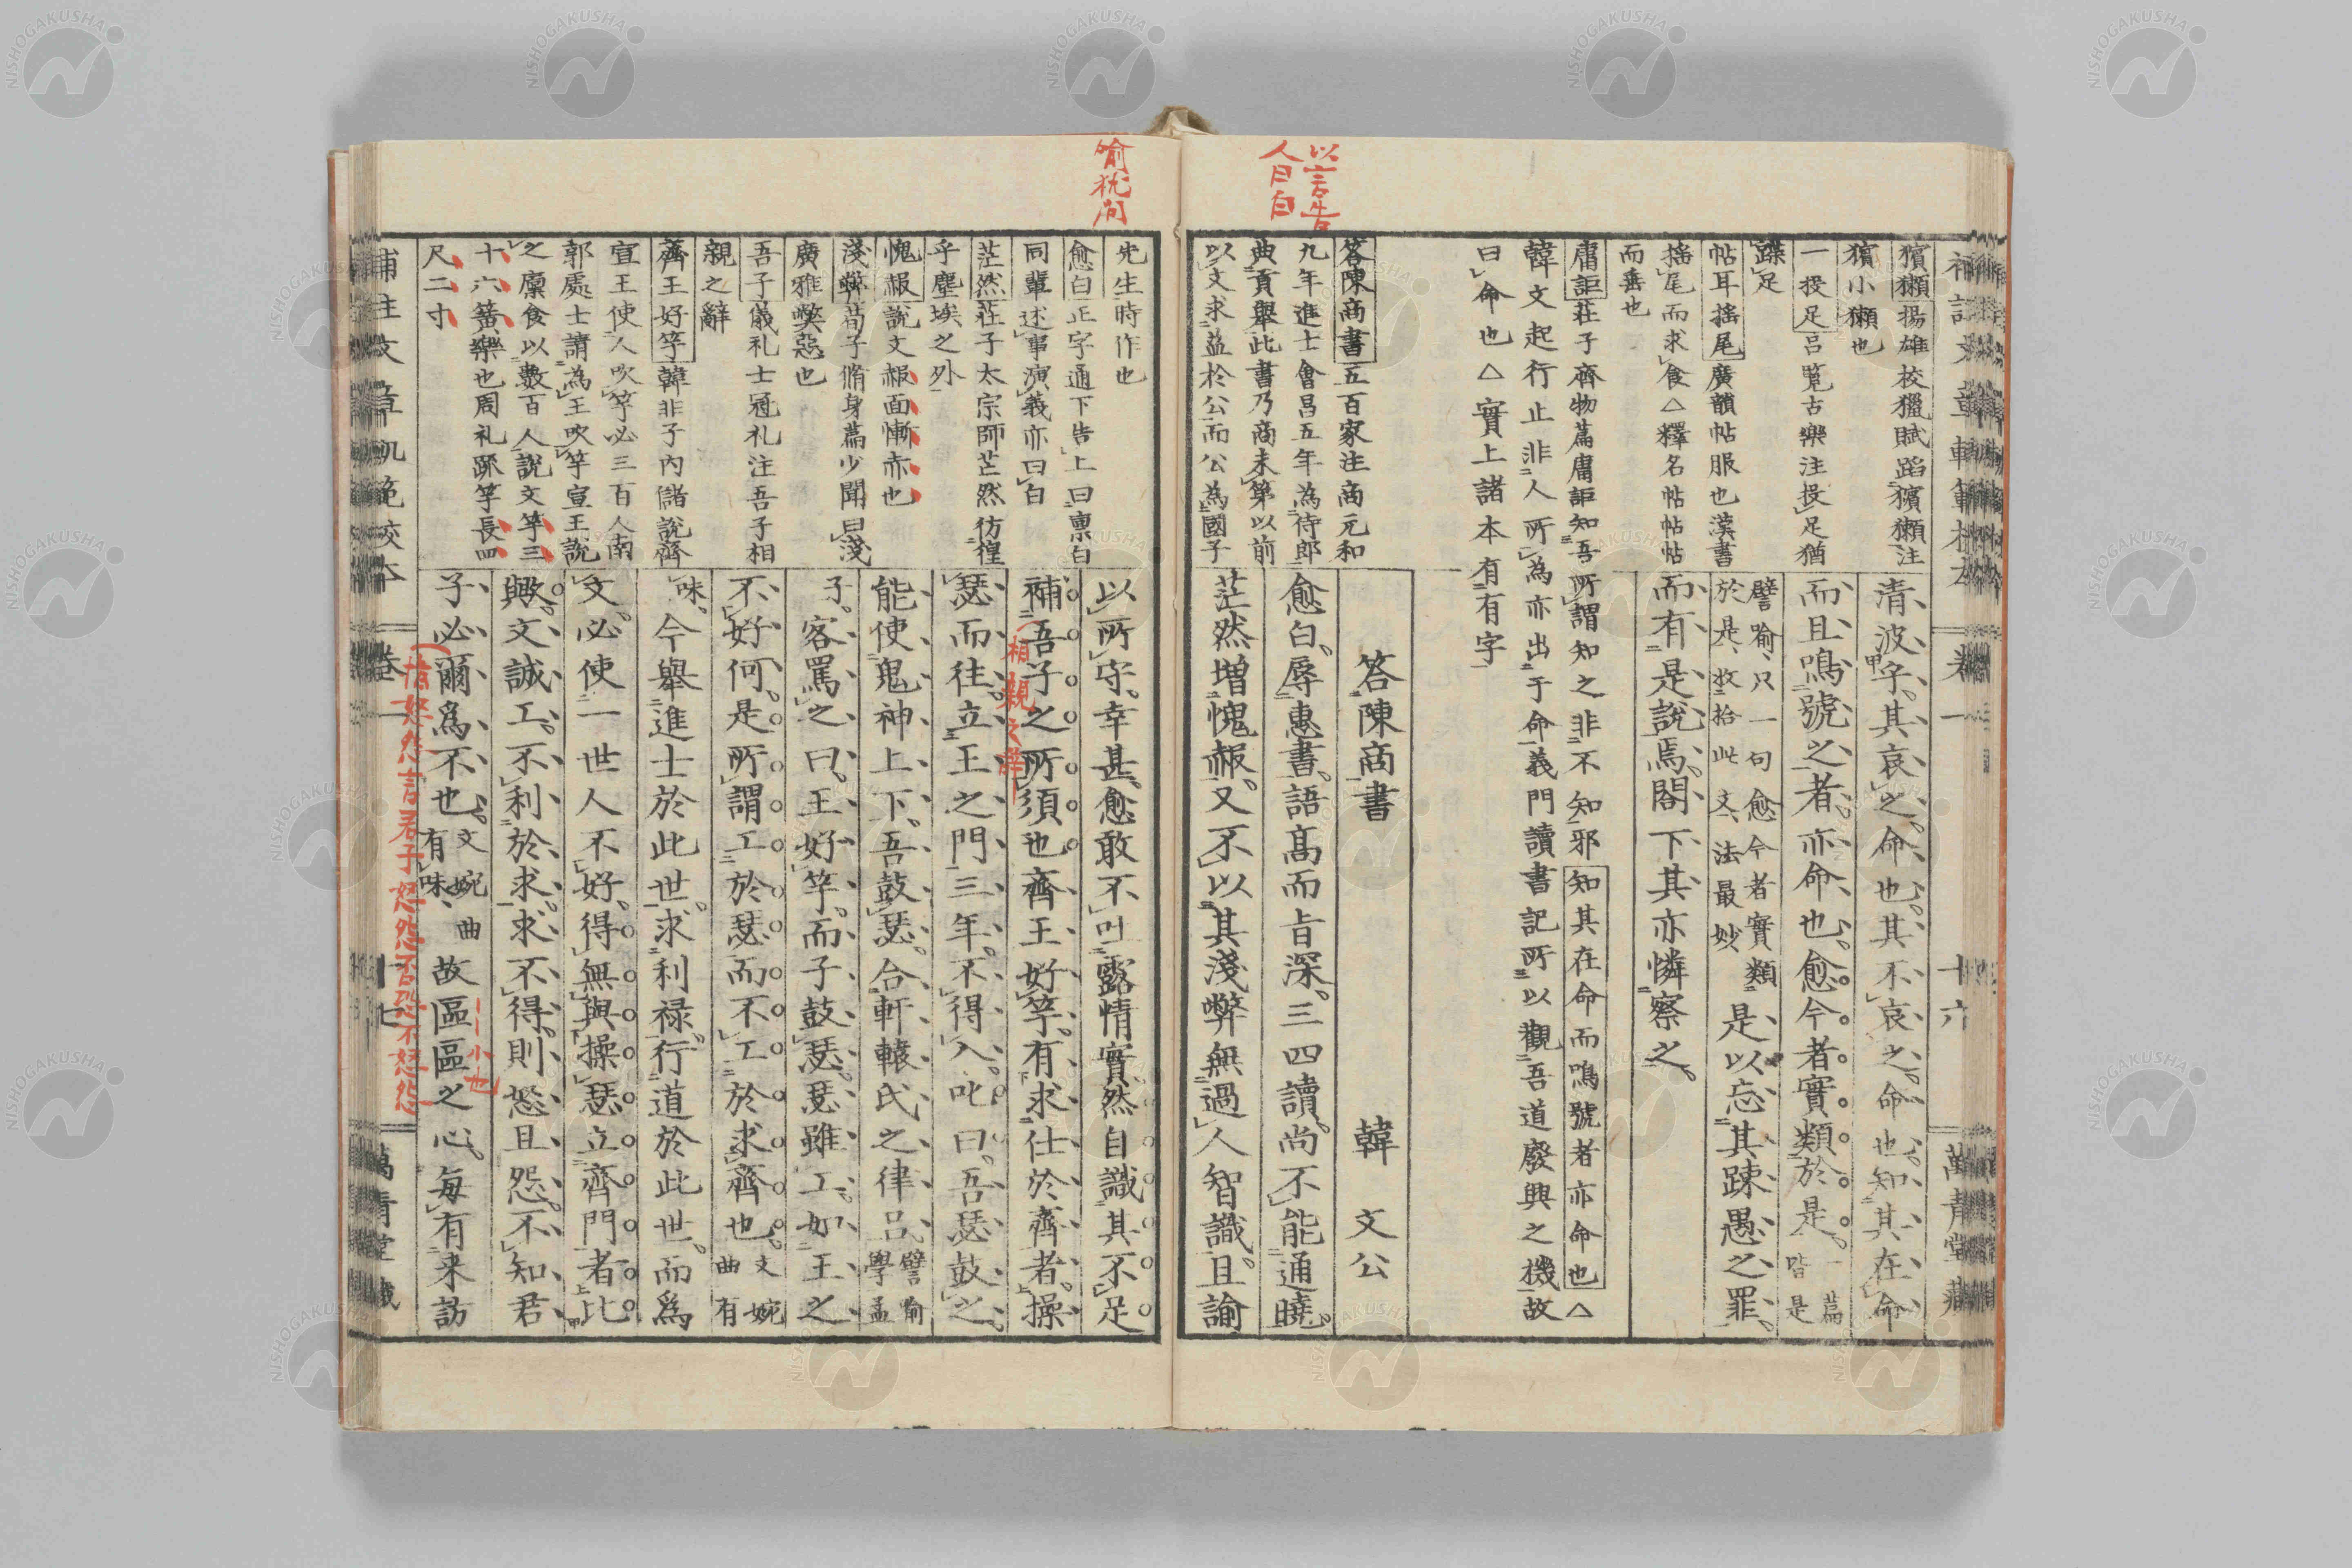 以言告
人曰白
獱獺揚雄校獵賦蹈獱獺注
獱小獺也
一投足呂覽古樂注投足猶
蹀足
帖耳搖尾廣韻帖服也漢書
搖尾而求食△釋名帖帖帖
而垂也
庸詎莊子齊物篇庸詎知吾所謂知之非不知邪知其在命而鳴號者亦命也△
韓文起行止非人所為亦出于命義門讀書記所以觀吾道廢興之機故
曰命也△實上諸本有有字
清波乎其哀之命也其不哀之命也知其在命
而且鳴號之者亦命也愈今者實類於是一篇皆是
譬喻只一句愈今者實類
於是故拾此文法最妙
是以忘其踈愚之罪
而有是說焉閤下其亦憐察之
答陳商書五百家注商元和
九年進士會昌五年為侍郎
典貢舉此書乃商未第以前
以文求益於公而公為國子
答陳商書 韓文公
愈白辱惠書語高而旨深三四讀尚不能通曉
茫然增愧赧又不以其淺弊無過人智識且諭
補註文章軌範校本 卷一 十六 萬青堂藏
喻
先生時作也
愈白正字通下告上曰稟白
同輩述事演義亦曰白
茫然莊子太宗師芒然彷徨
乎塵埃之外
愧赧說文赧面慚赤也
淺弊荀子脩身篇少聞曰淺
廣雅獘惡也
吾子儀礼士冠礼注吾子相
親之辭
齊王好竽韓非子內儲說齊
宣王使人吹竽必三百人南
郭處士請為王吹竽宣王說
之廩食以數百人說文竽三
十六簧樂也周礼疏竽長四
尺二寸
以所守幸甚愈敢不吐露情實然自識其不足
補吾子之所須也齊王好竽有求仕於齊者操
相親之辭
瑟而往立王之門三年不得入叱曰吾瑟鼓之
能使鬼神上下吾鼓瑟合軒轅氏之律呂譬喻學孟
子客罵之曰王好竽而子鼓瑟瑟雖工如王之
不好何是所謂工於瑟而不工於求齊也文婉曲有
味今舉進士於此世求利祿行道於此世而爲
文必使一世人不好得無與操瑟立齊門者比
歟文誠工不利於求求不得則怒且怨不知君
子必爾爲不也文婉曲有味故區區之心每有来訪
小也
怒怨言君子怒怨否恐不怒怨
補註文章軌範校本 卷一 十七 萬青堂藏